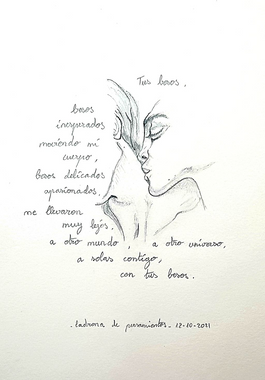 Tus besos.
besos
inesperados
moviendo mi
cuerpo,
besos delicados
apasionados.
me llevaron
muy lejos,
a otro mundo, a otro universo,
a solas contigo,
con tus besos.
·ladrona de pensamientos. 12-10-2021